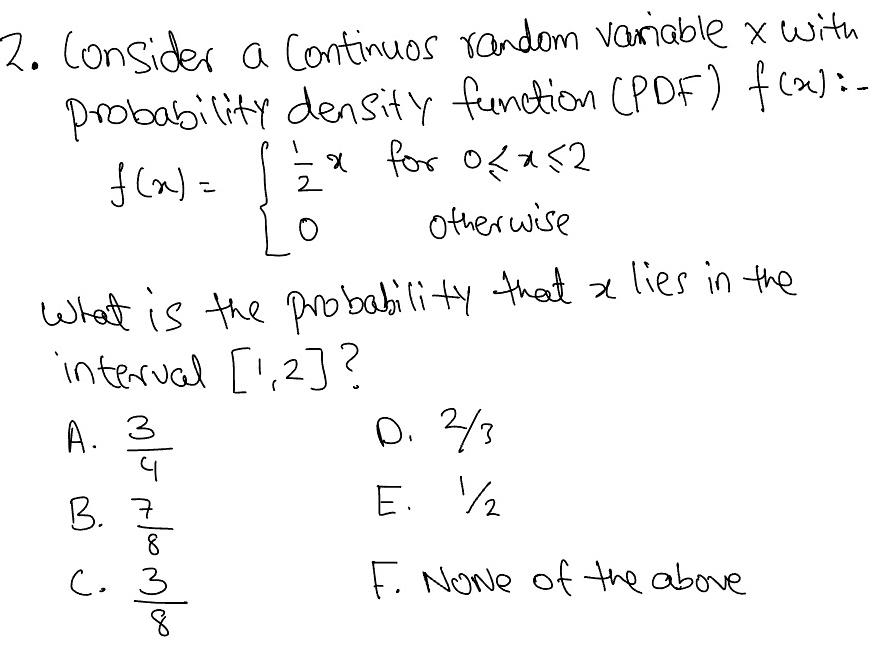 2. Consider a Continuos random variable x with
probability density function (PDF) f(x):-
f(x) = { 1/2 x for 0 ≤ x ≤ 2
0 otherwise
What is the probability that x lies in the
interval [1,2]?
A. 3/4 D. 2/3
B. 7/8 E. 1/2
C. 3/8 F. None of the above